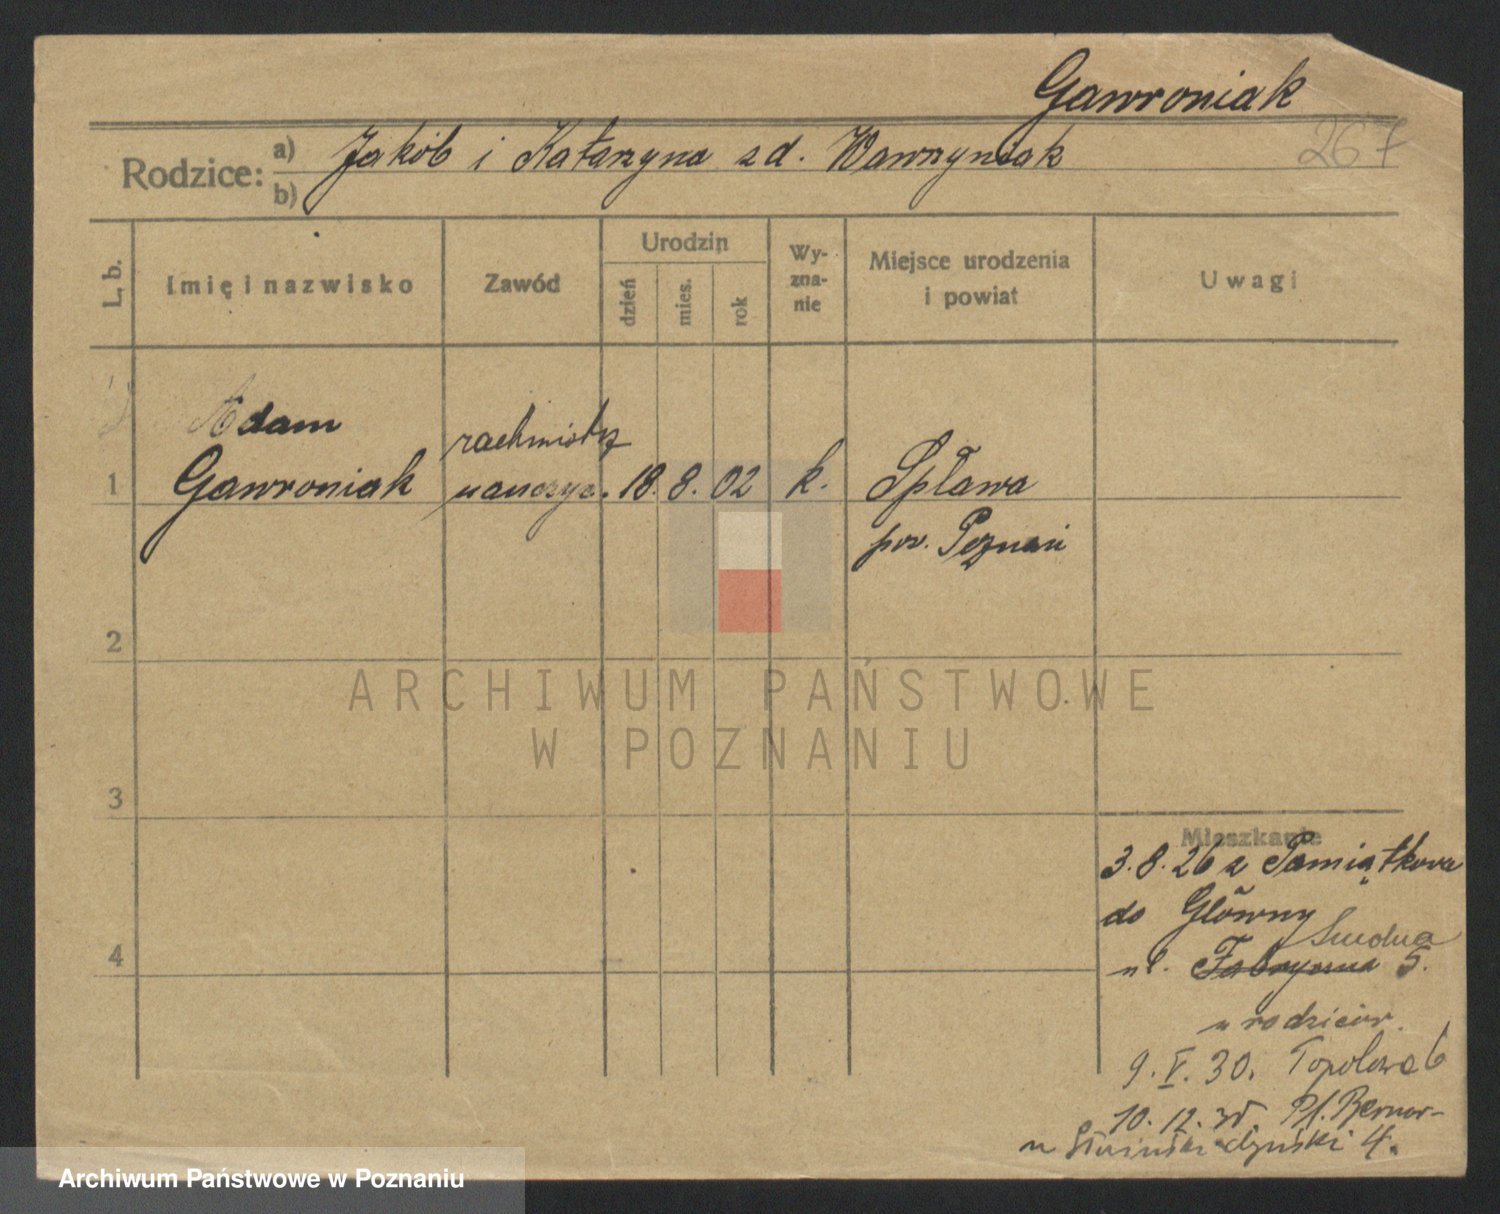 Gawroniak
267
Rodzice: a) Jakób i Katarzyna z d. Wawrzyniak
b)
L. b.
Imię i nazwisko
Zawód
Urodzin
dzień
mies.
rok
Wy-
zna-
nie
Miejsce urodzenia
i powiat
Uwagi
Adam
1 Gawroniak
nauczyc. 18. 8. 02 k. Spława
pow. Poznań
2
3
4
Mieszkanie
3.8.26 z Pamiątkowa
do Główny
ul. Fabryczna 5.
u rodziców.
9.V.30. Topolowa 6
10.12. Pl. Bernar-
dyński 4.
ARCHIWUM PAŃSTWOWE
W POZNANIU
Archiwum Państwowe w Poznaniu